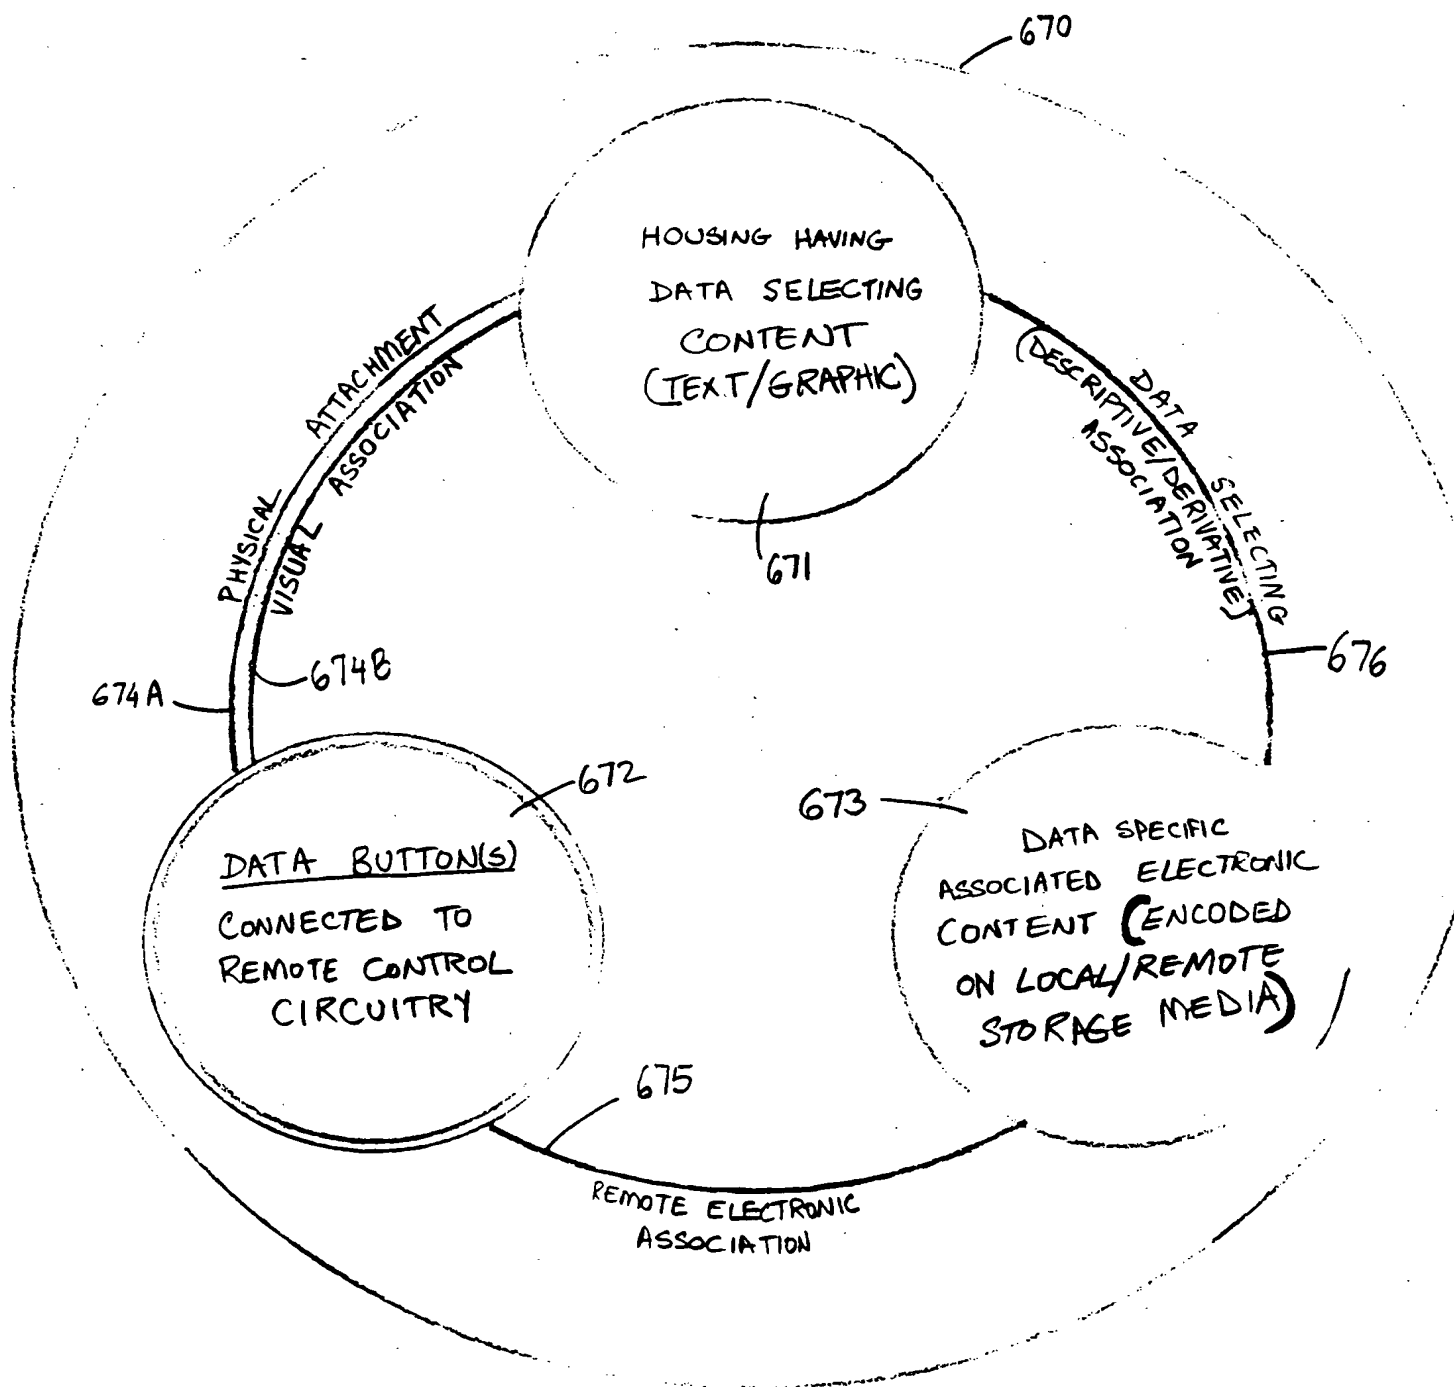 670
HOUSING HAVING
DATA SELECTING
CONTENT
(TEXT/GRAPHIC)
671
PHYSICAL ATTACHMENT
VISUAL ASSOCIATION
DATA SELECTING
(DESCRIPTIVE/DERIVATIVE)
ASSOCIATION
674A
674B
676
672
DATA BUTTON(S)
CONNECTED TO
REMOTE CONTROL
CIRCUITRY
673
DATA SPECIFIC
ASSOCIATED ELECTRONIC
CONTENT (ENCODED
ON LOCAL/REMOTE
STORAGE MEDIA)
675
REMOTE ELECTRONIC
ASSOCIATION